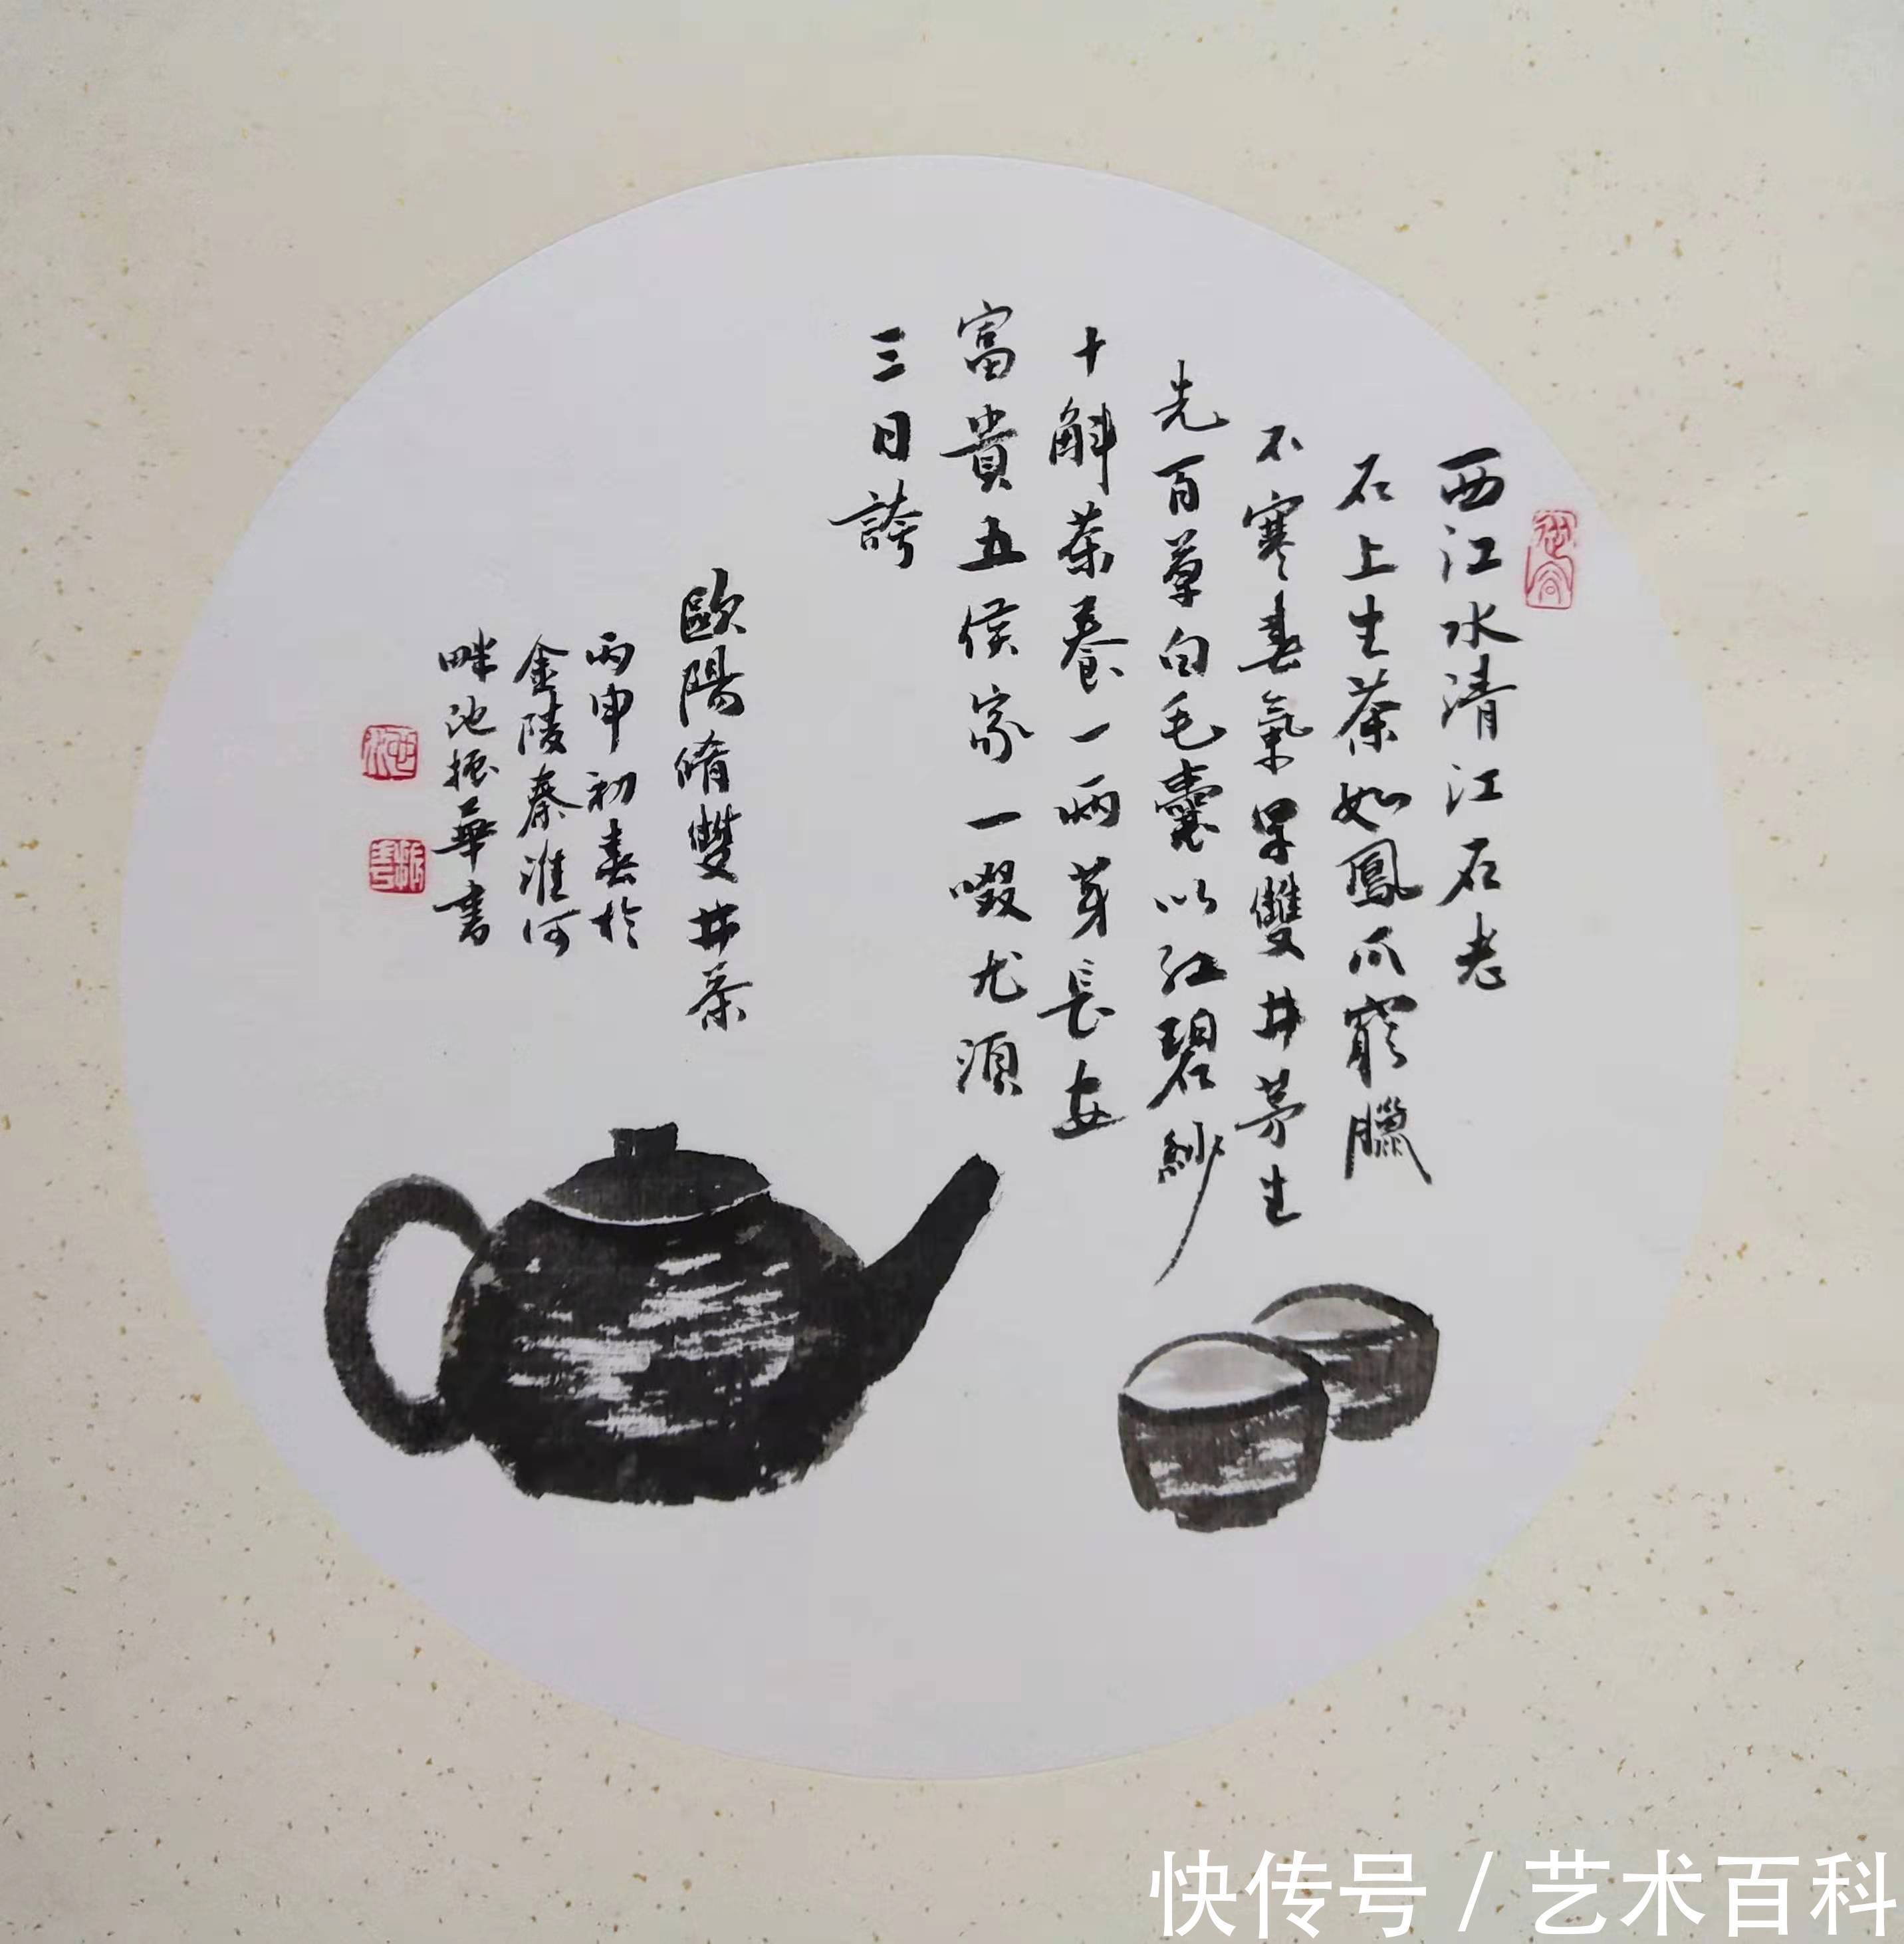 西江水清江石老
石上生茶如鳳爪窮臘
不寒春氣早雙井芽生
先百草白毛囊以紅碧紗
十斛茶養一兩芽長安
富貴五侯家一啜尤須
三日誇
歐陽脩雙井茶
丙申初春於
金陵秦淮河
畔池振華書
池
快传号/艺术百科